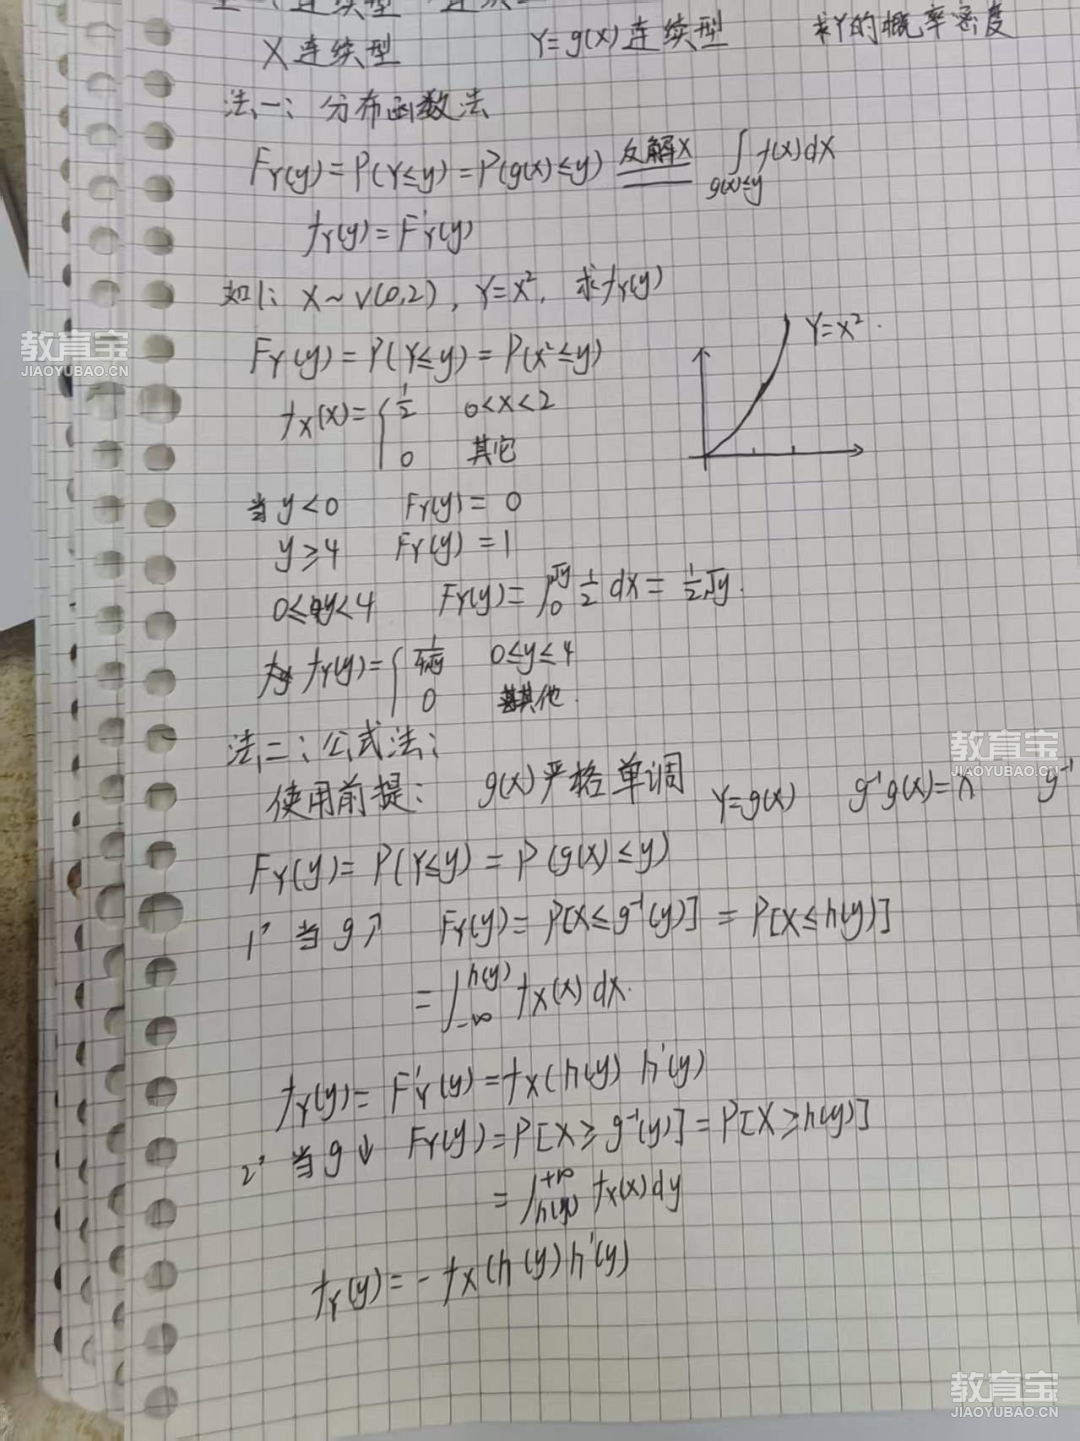 X连续型 Y=g(X)连续型 求Y的概率密度
法一：分布函数法
F_Y(y)=P(Y≤y)=P(g(X)≤y) 反解X ∫_{g(x)≤y} f(x)dx
f_Y(y)=F'_Y(y)
如1：X~U(0,2)，Y=X²，求f_Y(y)
F_Y(y)=P(Y≤y)=P(X²≤y)
Y=X².
f_X(x)={ 1/2 0<x<2
0 其它
当y<0 F_Y(y)=0
y≥4 F_Y(y)=1
0≤y<4 F_Y(y)=∫_0^{√y} 1/2 dx = 1/2 √y.
f_Y(y)={ 1/(4√y) 0≤y≤4
0 其他.
法二：公式法：
使用前提： g(x)严格单调 Y=g(x) g⁻¹g(x)=x g⁻¹
F_Y(y)=P(Y≤y)=P(g(X)≤y)
1° 当g↗ F_Y(y)=P[X≤g⁻¹(y)]=P[X≤h(y)]
=∫_{-∞}^{h(y)} f_X(x)dx.
f_Y(y)=F'_Y(y)=f_X(h(y) h'(y)
2° 当g↓ F_Y(y)=P[X≥g⁻¹(y)]=P[X≥h(y)]
=∫_{h(y)}^{+∞} f_X(x)dy
f_Y(y)=-f_X(h(y)h'(y)
教育宝
JIAOYUBAO.CN
教育宝
JIAOYUBAO.CN
教育宝
JIAOYUBAO.CN